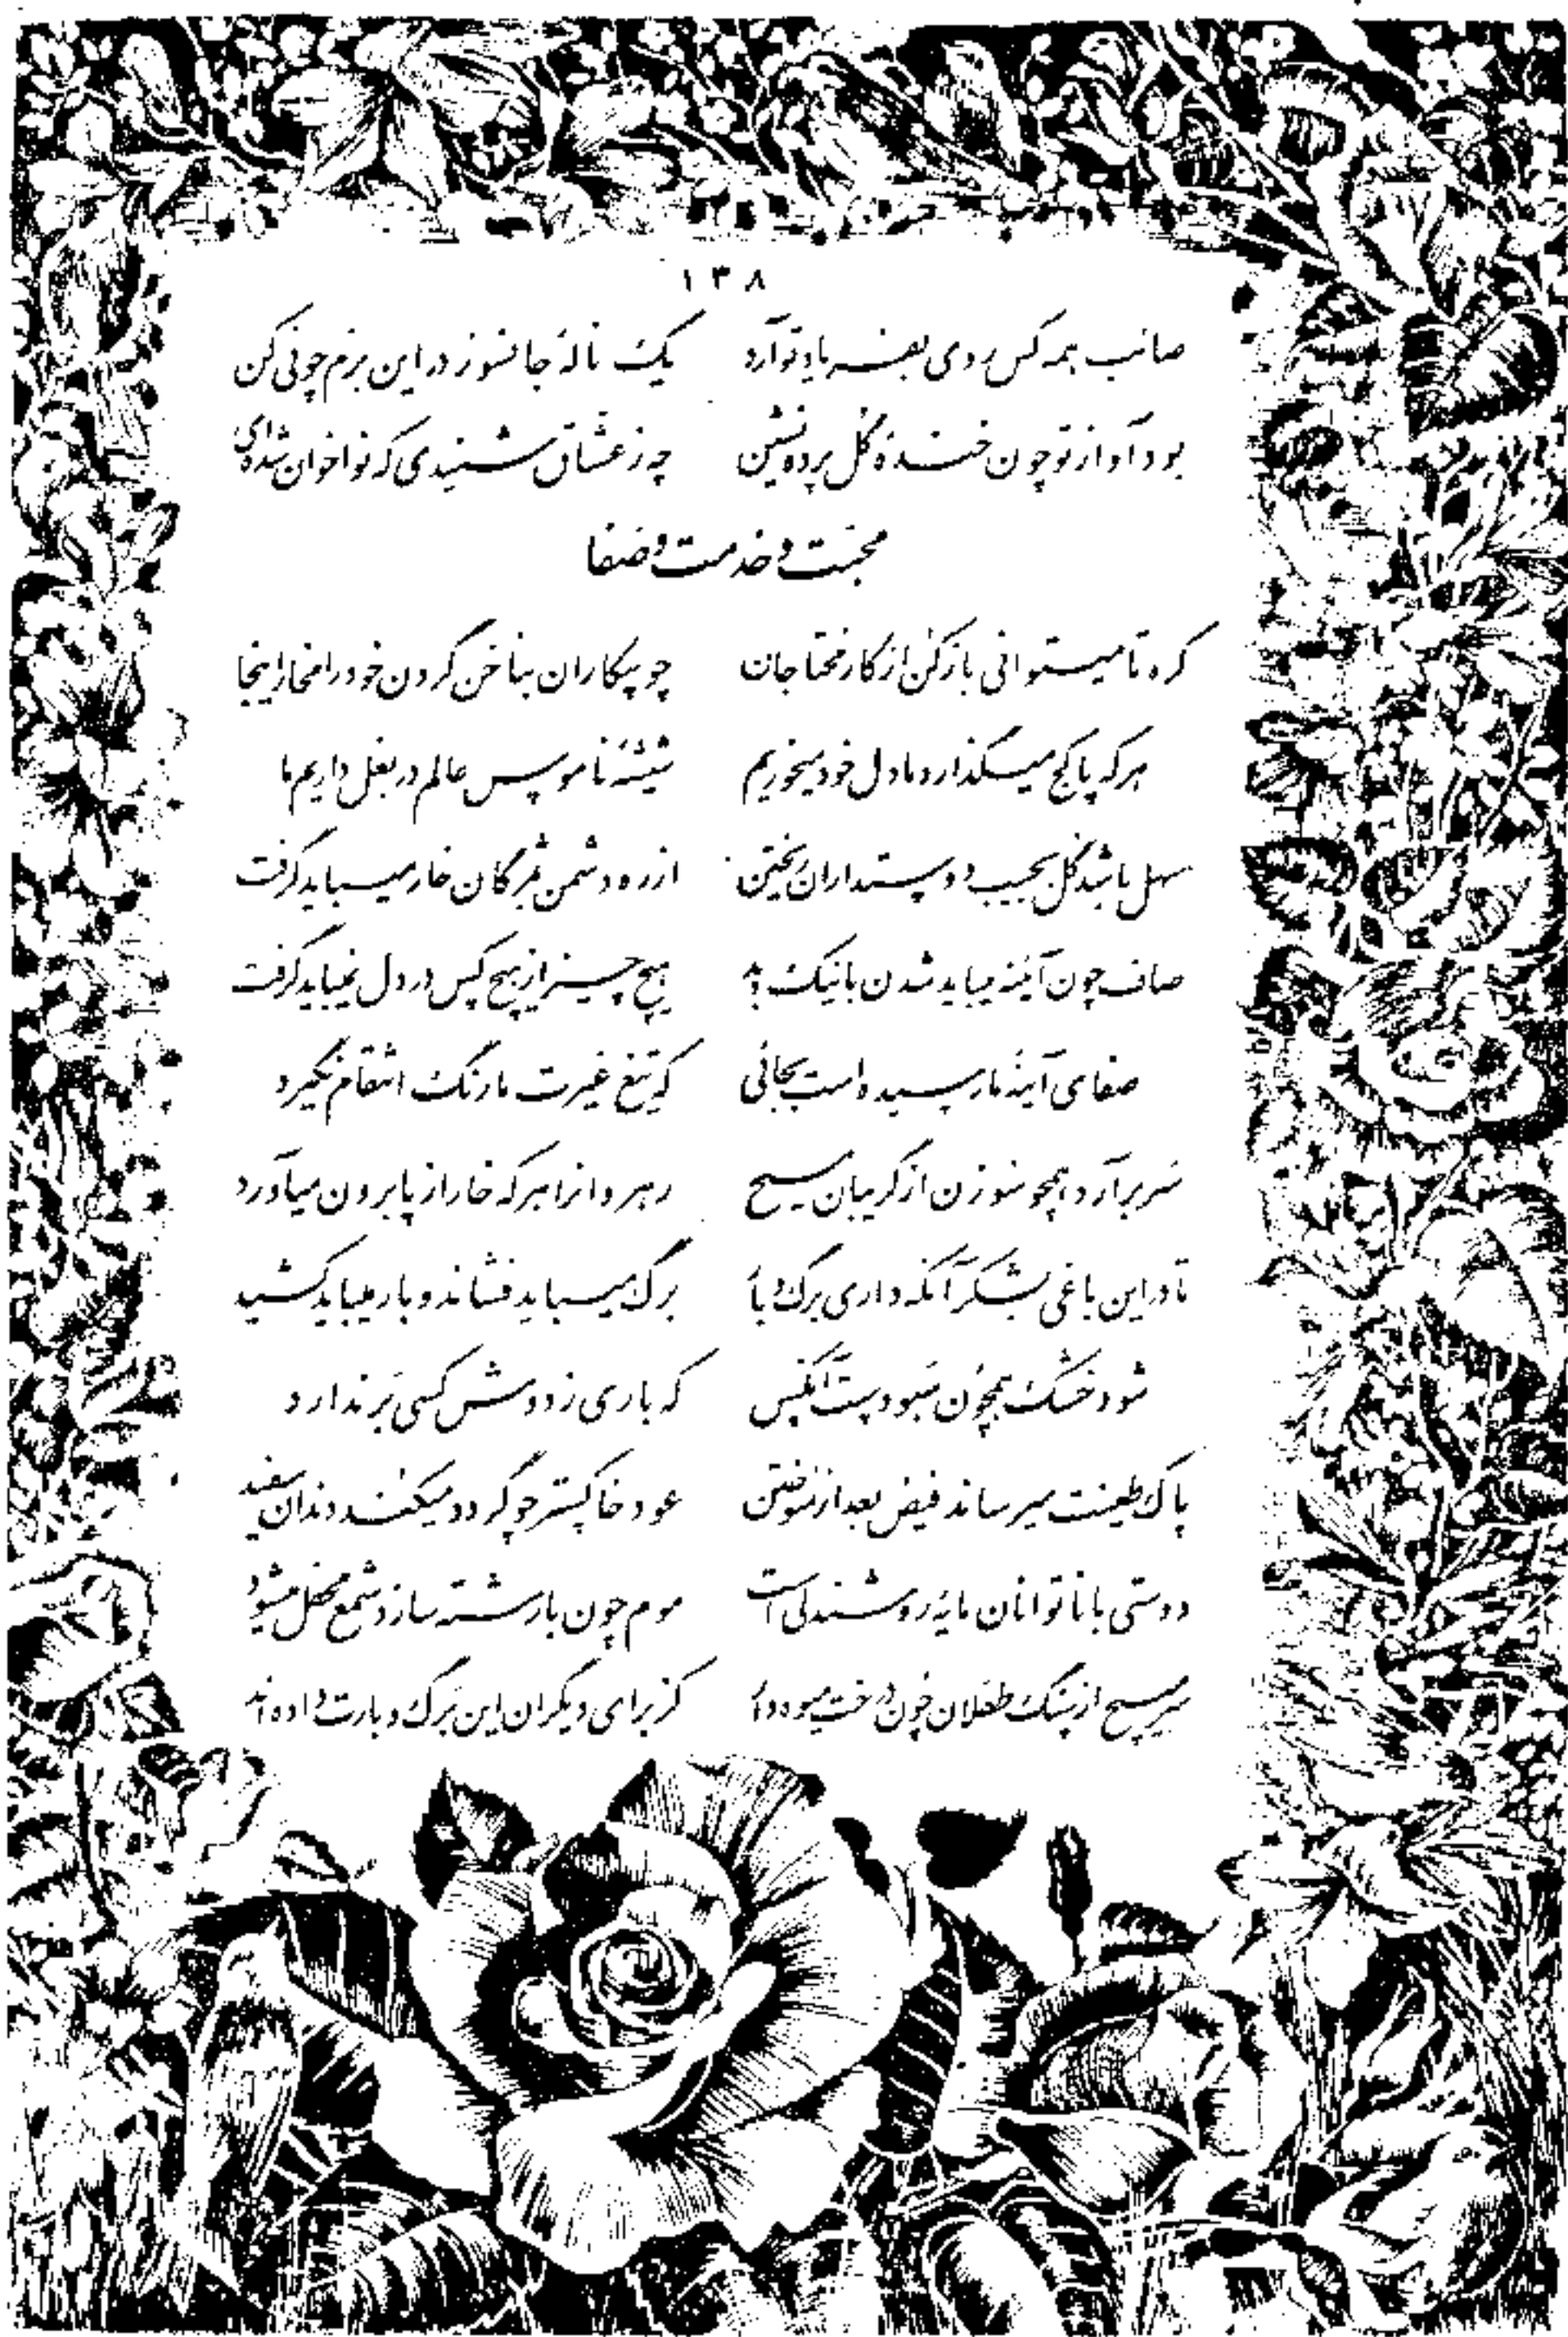 ۱۳۸
صائب همه کس روی بفریاد تو آرد یک نالهٔ جانسوز در این بزم چو نی کن
بود آواز تو چون خندهٔ گل پرده نشین چه ز عشاق شنیدی که نواخوان شده‌ای
محبت و خدمت و صفا
گره تا میتوانی باز کن از کار محتاجان چو بیکاران بناخن گردن خود را مخار اینجا
هر که پا کج میگذارد ما دل خود میخوریم شیشهٔ ناموس عالم در بغل داریم ما
سهل باشد گل بجیب دوستداران ریختن از ره دشمن بمژگان خار میباید گرفت
صاف چون آینه میباید شدن با نیک و بد هیچ چیز از هیچ کس در دل نمیباید گرفت
صفای آینهٔ ما رسیده است بجائی که تیغ غیرت ما رنگ انتقام نگیرد
سر برآرد همچو سوزن از گریبان مسیح رهروانرا هر که خار از پا برون میآورد
تا در این باغی بشکر آنکه داری برگ و بار برگ میباید فشاند و بار میباید کشید
شود خشک همچون سبو دست آنکس که باری ز دوش کسی بر ندارد
پاک طینت میرساند فیض بعد از سوختن عود خاکستر چو گردد میکند دندان سفید
دوستی با ناتوانان مایهٔ روشندلی است موم چون با رشته سازد شمع محفل میشود
سر مپیچ از سنگ طفلان چون درخت میوه دار کز برای دیگران این برگ و بارت داده‌اند